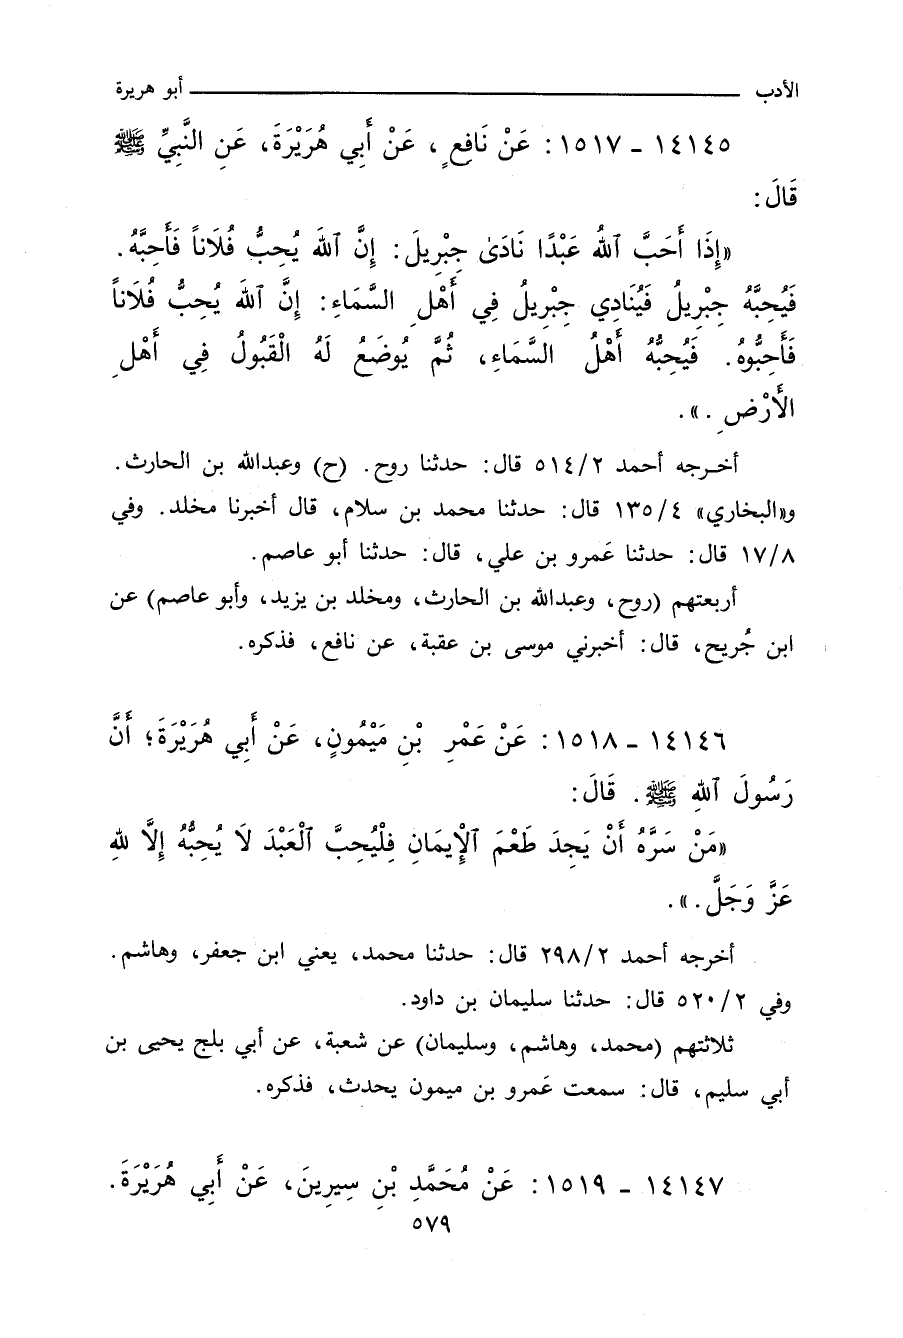 الأدب ــــــــ أبو هريرة
١٤١٤٥ ـ ١٥١٧ : عَنْ نَافِعٍ ، عَنْ أَبِي هُرَيْرَةَ، عَنِ النَّبِيِّ ﷺ
قَالَ :
«إِذَا أَحَبَّ ٱللهُ عَبْدًا نَادَىٰ جِبْرِيلَ : إِنَّ ٱللهَ يُحِبُّ فُلَاناً فَأَحِبَّهُ .
فَيُحِبُّهُ جِبْرِيلُ فَيُنَادِي جِبْرِيلُ فِي أَهْلِ السَّمَاءِ : إِنَّ ٱللهَ يُحِبُّ فُلَاناً
فَأَحِبُّوهُ . فَيُحِبُّهُ أَهْلُ السَّمَاءِ، ثُمَّ يُوضَعُ لَهُ الْقَبُولُ فِي أَهْلِ
الأَرْضِ .» .
أخـرجه أحمد ٢/ ٥١٤ قال : حدثنا روح . (ح) وعبدالله بن الحارث .
و«البخاري» ٤ /١٣٥ قال : حدثنا محمد بن سلام ، قال أخبرنا مخلد . وفي
٨/ ١٧ قال : حدثنا عَمرو بن علي ، قال : حدثنا أبو عاصم .
أربعتهم (روح ، وعبدالله بن الحارث ، ومخلد بن يزيد ، وأبو عاصم) عن
ابن جُريح ، قال : أخبرني موسى بن عقبة ، عن نافع ، فذكره .
١٤١٤٦ ـ ١٥١٨ : عَنْ عَمْرِ بْنِ مَيْمُونٍ، عَنْ أَبِي هُرَيْرَةَ؛ أَنَّ
رَسُولَ ٱللهِ ﷺ . قَالَ :
«مَنْ سَرَّهُ أَنْ يَجِدَ طَعْمَ ٱلْإِيمَانِ فِلْيُحِبَّ ٱلْعَبْدَ لَا يُحِبُّهُ إِلَّا للهِ
عَزَّ وَجَلَّ .» .
أخرجه أحمد ٢ /٢٩٨ قال : حدثنا محمد ، يعني ابن جعفر ، وهاشم .
وفي ٢ / ٥٢٠ قال : حدثنا سليمان بن داود .
ثلاثتهم (محمد ، وهاشم ، وسليمان) عن شعبة ، عن أبي بلج يحيى بن
أبي سليم ، قال : سمعت عَمرو بن ميمون يحدث ، فذكره .
١٤١٤٧ ـ ١٥١٩ : عَنْ مُحَمَّدِ بْنِ سِيرِينَ ، عَنْ أَبِي هُرَيْرَةَ .
٥٧٩